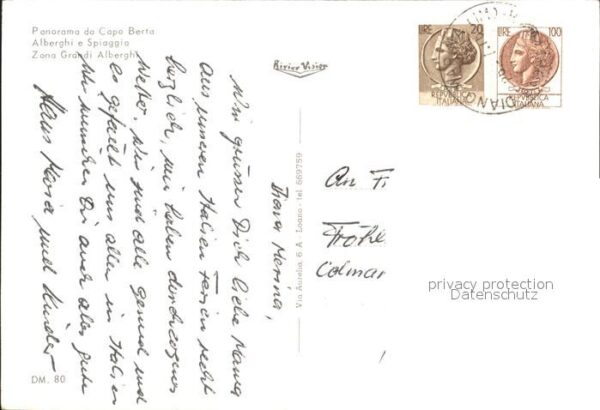 Panorama da Capo Berta
Alberghi e Spiaggia
Zona Grandi Alberghi
Rivier Vision
LIRE 20
REPUBBLICA
ITALIANA
LIRE 100
REPUBBLICA
ITALIANA
DIANO
Diano Marina,
Wir grüssen Dich liebe Mama
aus unseren Italien Ferien recht
herzlich, wir haben durchzogenes
Wetter. Wir sind alle gesund und
es gefällt uns allen in Italien
Wir wünschen Dir auch alles gute
Hans Maria und Kinder
An F
Fröhl
Colmar
Via Aurelia, 6 A - Loano - tel 669759
DM. 80
privacy protection
Datenschutz